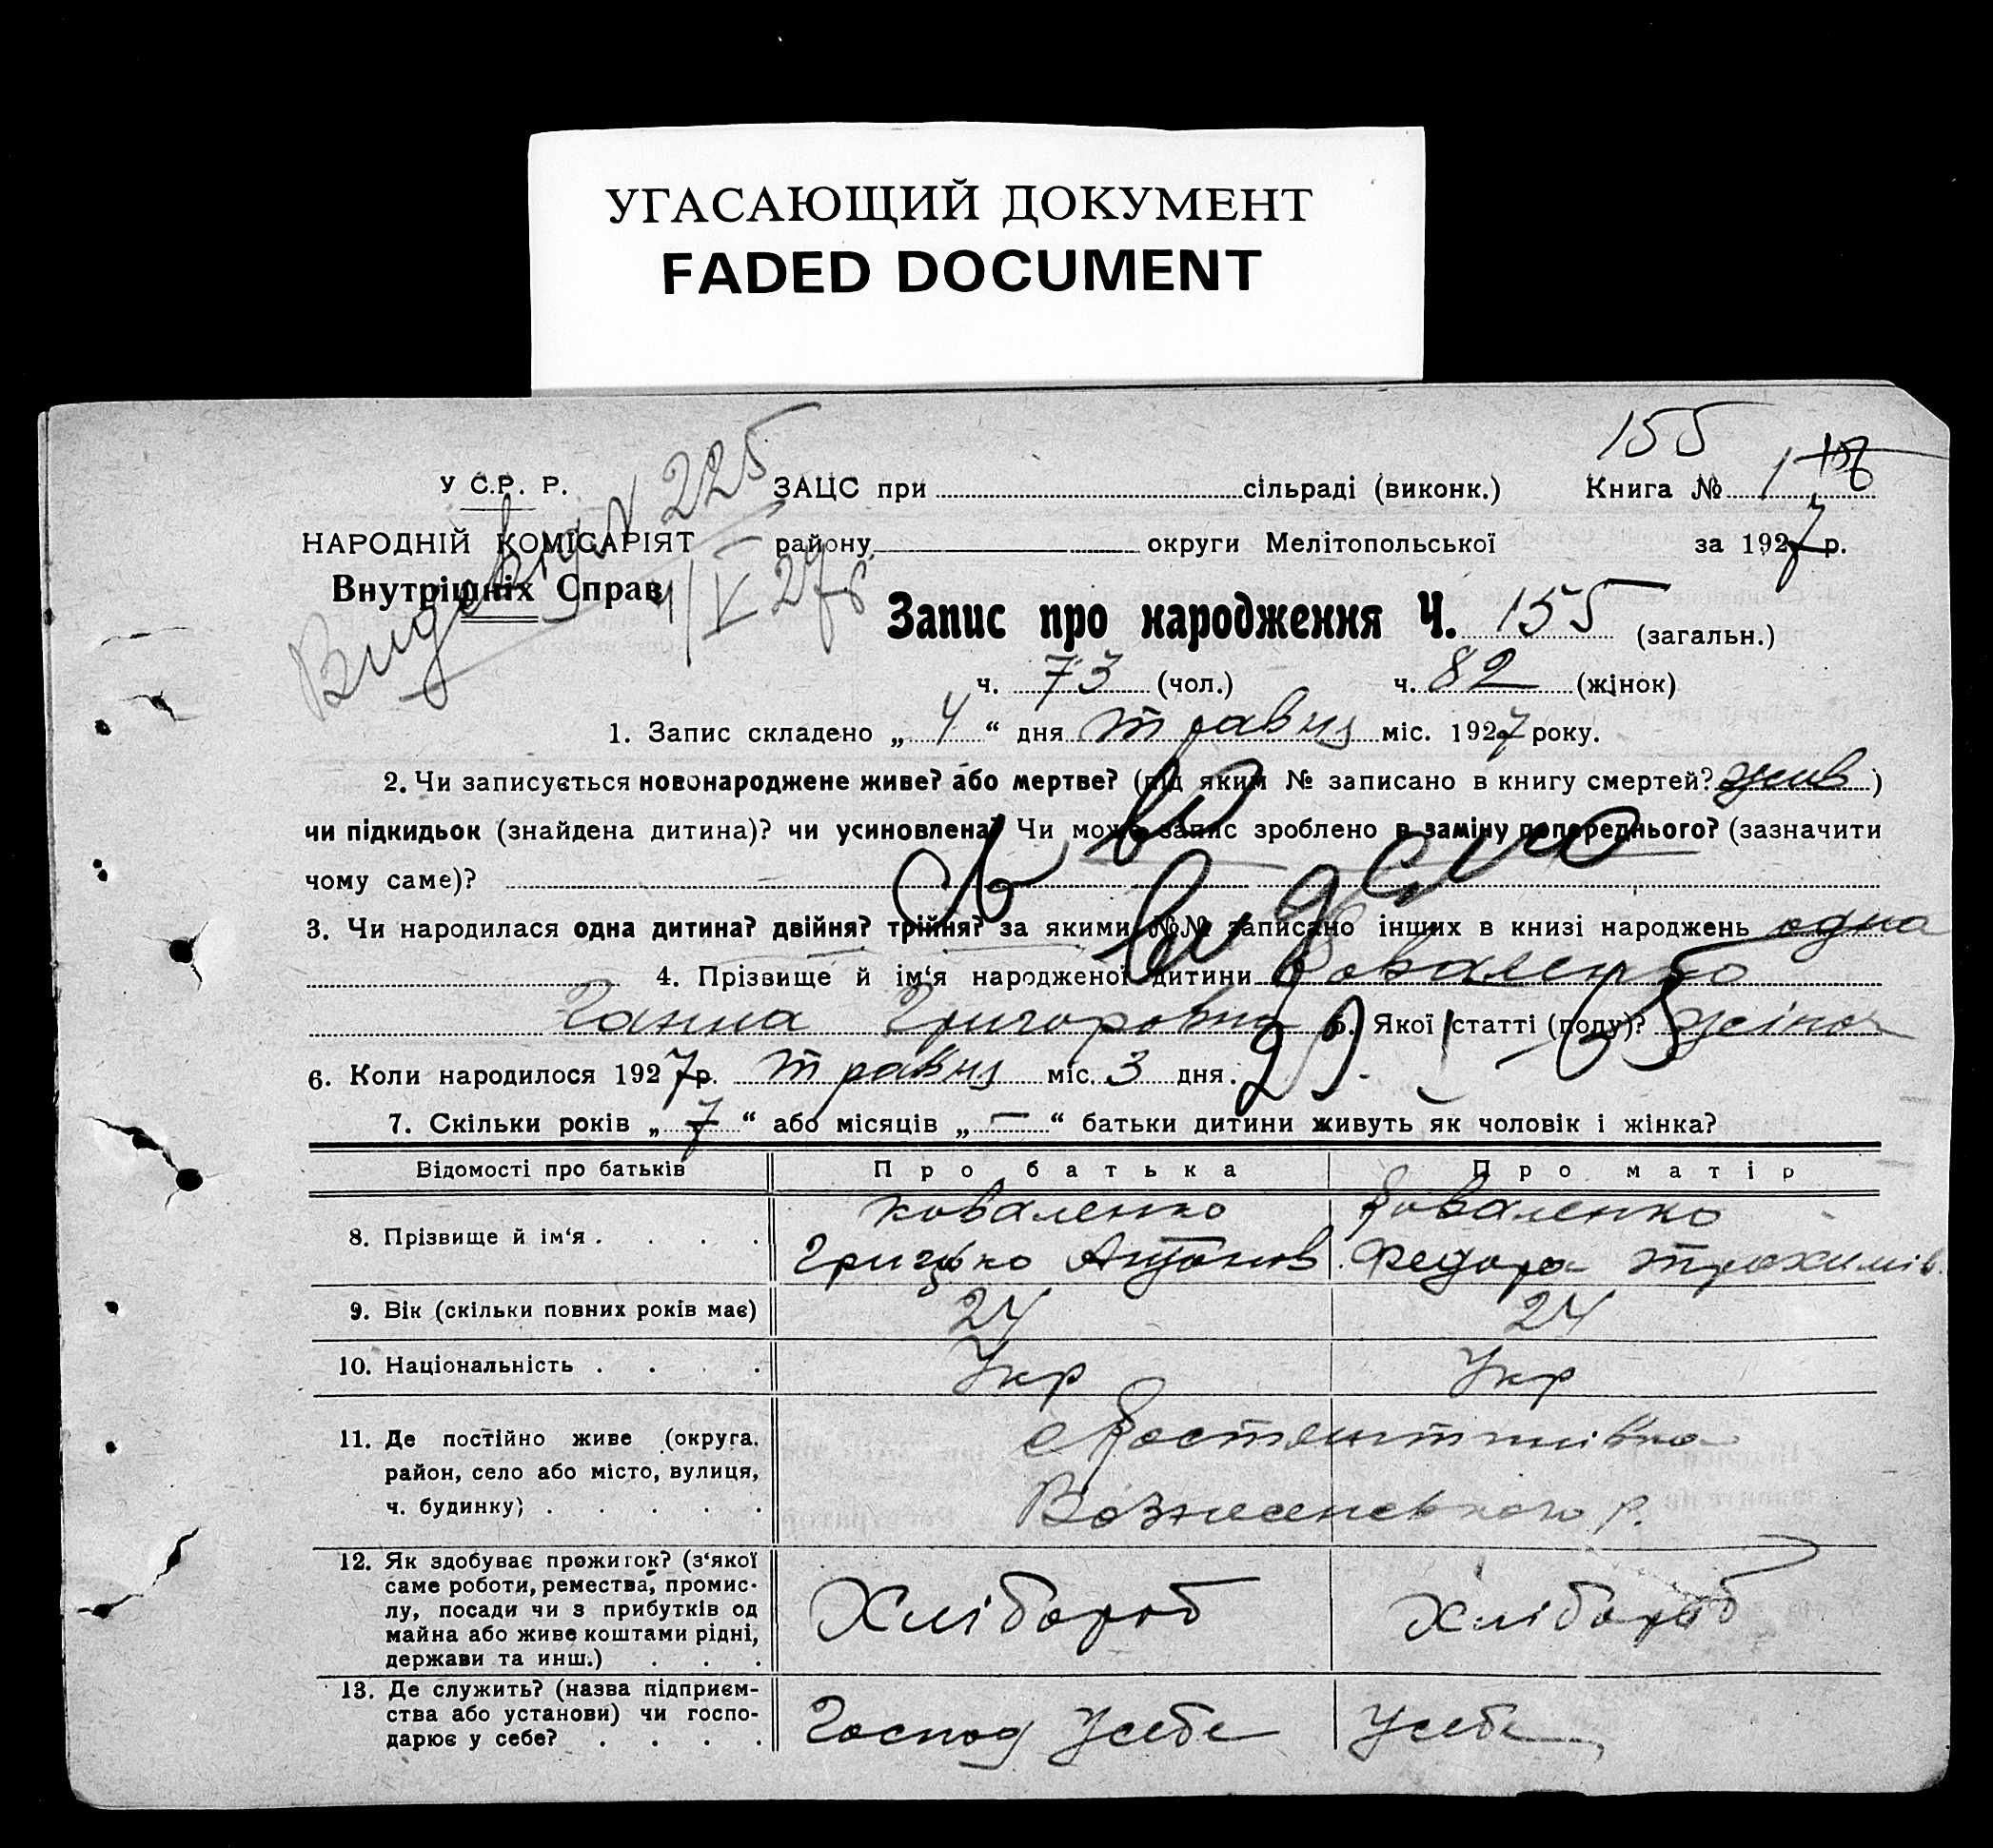 УГАСАЮЩИЙ ДОКУМЕНТ
FADED DOCUMENT
155
У С.Р. Р. ЗАЦС при сільраді (виконк.) Книга № 1 156
НАРОДНІЙ КОМІСАРІЯТ району округи Мелітопольської за 1927 р.
Внутрішніх Справ
Видан 225
4/V 27р
Запис про народження Ч. 155 (загальн.)
ч. 73 (чол.) ч. 82 (жінок)
1. Запис складено „ 4 “ дня травня міс. 1927 року.
2. Чи записується новонароджене живе? або мертве? (під яким № записано в книгу смертей? жив )
чи підкидьок (знайдена дитина)? чи усиновлена? Чи може запис зроблено в заміну попереднього? (зазначити
чому саме)?
Св во
видано
3. Чи народилася одна дитина? двійня? трійня? за якими №№ записано інших в книзі народжень одна
4. Прізвище й ім‘я народженої дитини Коваленко
Ганна Григоровна 5. Якої статті (полу)? жіноч
6. Коли народилося 1927 р. травня міс. 3 дня.
7. Скільки років „ 7 “ або місяців „ — “ батьки дитини живуть як чоловік і жінка?
Відомості про батьків Про батька Про матір
8. Прізвище й ім‘я . . . . Коваленко Коваленко
Грицько Антонов Федора Трохимів.
9. Вік (скільки повних років має) 24 24
10. Національність . . . . Укр Укр
11. Де постійно живе (округа, с Костянтинівка
район, село або місто, вулиця,
ч. будинку) . . . . . Вознесенського р.
12. Як здобуває прожиток? (з‘якої
саме роботи, ремества, промис-
лу, посади чи з прибутків од Хлібороб Хлібороб
майна або живе коштами рідні,
держави та инш.) . . .
13. Де служить? (назва підприєм-
ства або установи) чи госпо- Господ Усебе Усебе
дарює у себе? . . . .